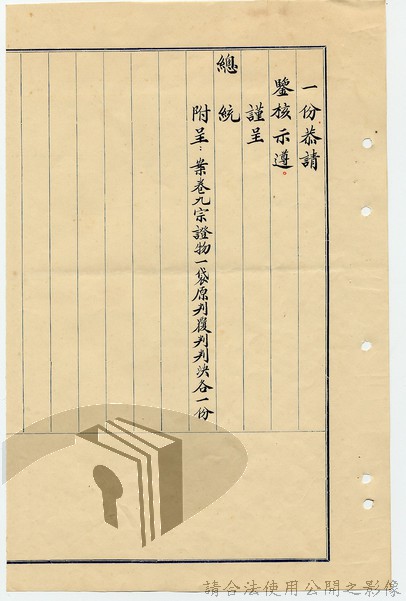 一份恭請
鑒核示遵。
謹呈
總統
附呈：案卷九宗證物一袋原判覆判判決各一份
請合法使用公開之影像